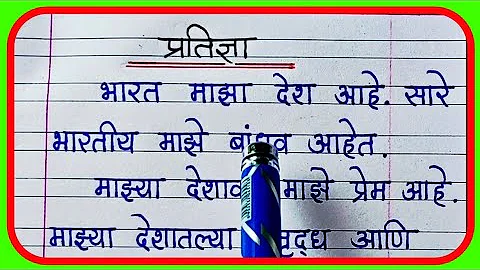 प्रतिज्ञा
भारत माझा देश आहे. सारे
भारतीय माझे बांधव आहेत.
माझ्या माझे प्रेम आहे.
माझ्या देशातल्या आणि